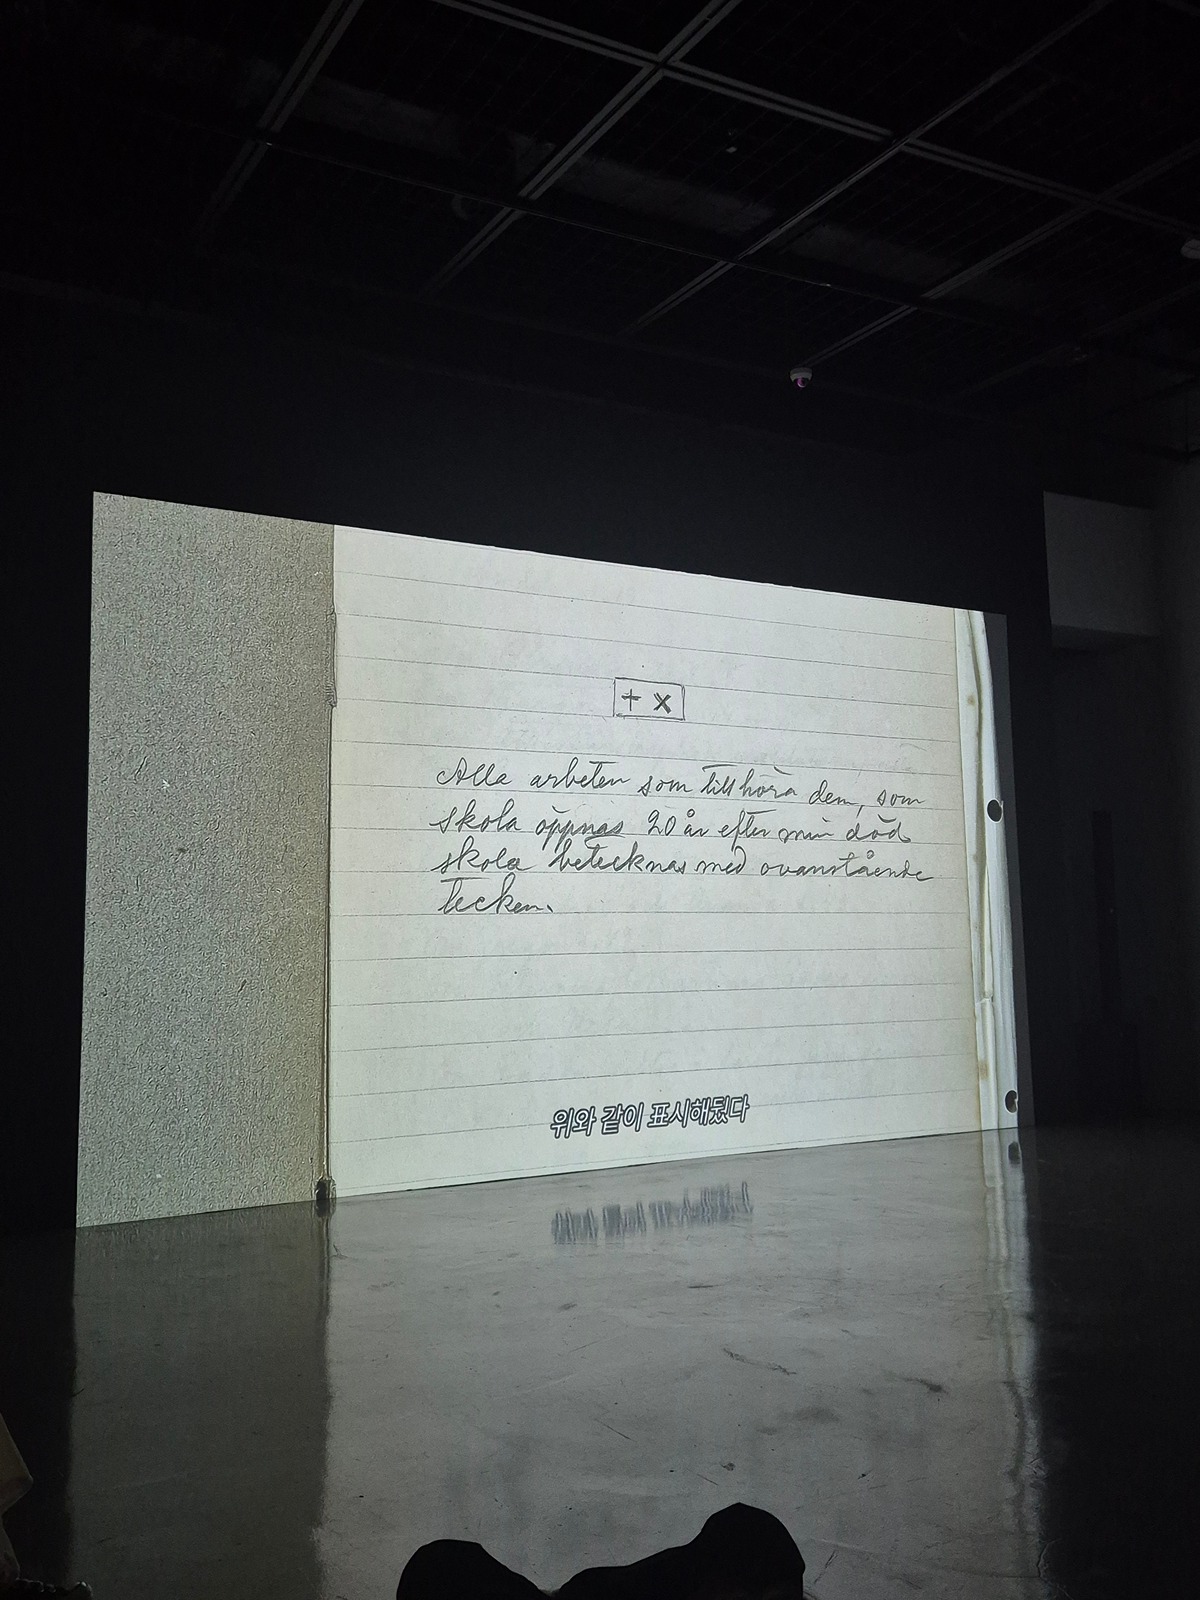 + x
Alla arbeten som tillhöra dem, som
skola öppnas 20 år efter min död
skola betecknas med ovanstående
tecken.
위와 같이 표시해뒀다